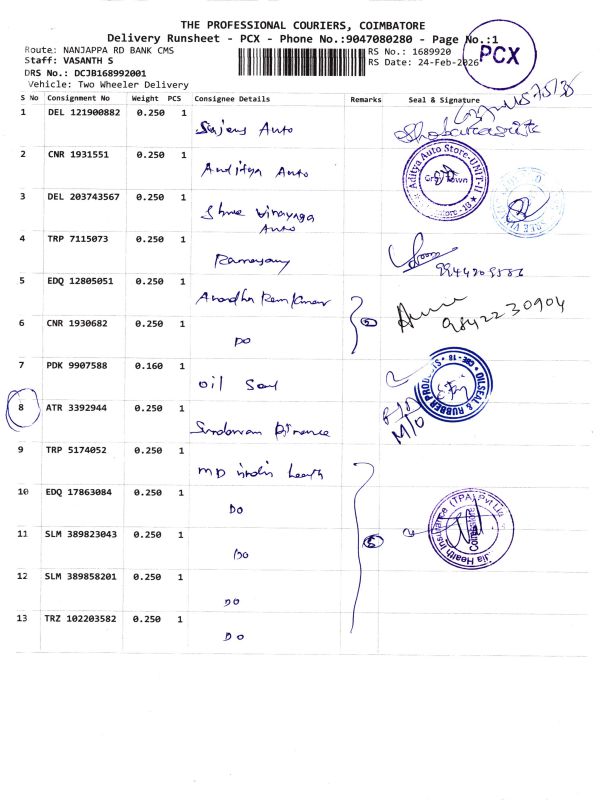 THE PROFESSIONAL COURIERS, COIMBATORE
Delivery Runsheet - PCX - Phone No.:9047080280 - Page No.:1
Route: NANJAPPA RD BANK CMS
RS No.: 1689920
PCX
Staff: VASANTH S
RS Date: 24-Feb-2026
DRS No.: DCJB168992001
Vehicle: Two Wheeler Delivery
S No Consignment No Weight PCS Consignee Details Remarks Seal & Signature
1 DEL 121900882 0.250 1 Auto
2 CNR 1931551 0.250 1 Auto
Aditya Auto Store-UNIT-II
3 DEL 203743567 0.250 1 Shree Vinayaga
Auto
4 TRP 7115073 0.250 1 Ramayany
5 EDQ 12805051 0.250 1 Anandha Ram Kumar
9842230904
6 CNR 1930682 0.250 1 DO
7 PDK 9907588 0.160 1 Oil Seal
OILSEAL & RUBBER PRODUCTS CBE - 18
8 ATR 3392944 0.250 1 Sundaram Finance
M/O
9 TRP 5174052 0.250 1 MD India health
10 EDQ 17863084 0.250 1 DO
Health Insurance (TPA) Pvt Ltd
Coimbatore
11 SLM 389823043 0.250 1 DO
5
12 SLM 389858201 0.250 1 DO
13 TRZ 102203582 0.250 1 DO